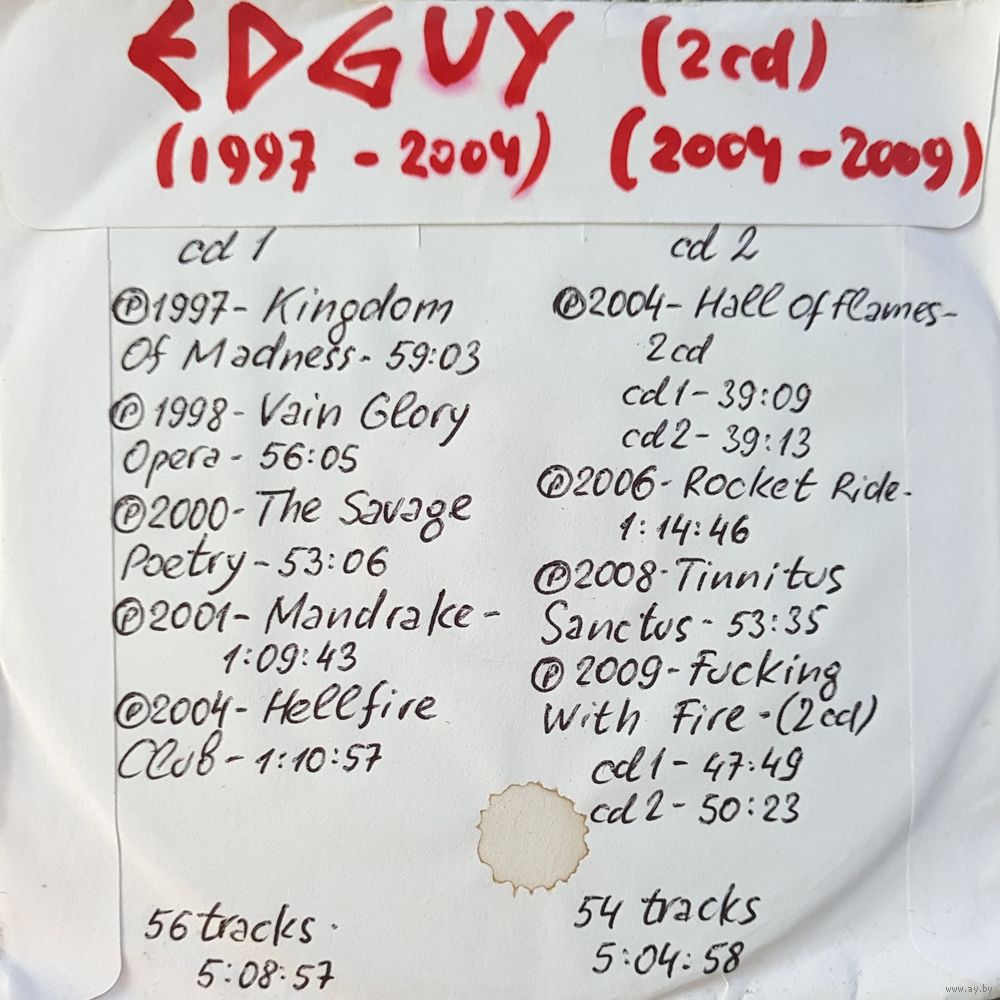 EDGUY (2cd)
(1997 - 2004) (2004-2009)
cd 1
℗1997- Kingdom
Of Madness- 59:03
℗ 1998- Vain Glory
Opera- 56:05
℗2000- The Savage
Poetry-53:06
℗2001- Mandrake-
1:09:43
℗2004- Hellfire
Club- 1:10:57
56 tracks.
5:08:57
cd 2
℗2004- Hall Of Flames-
2cd
cd1- 39:09
cd2- 39:13
℗2006- Rocket Ride-
1:14:46
℗2008- Tinnitus
Sanctus- 53:35
℗ 2009- Fucking
With Fire-(2cd)
cd1- 47:49
cd2- 50:23
54 tracks
5:04:58
www.ay.by